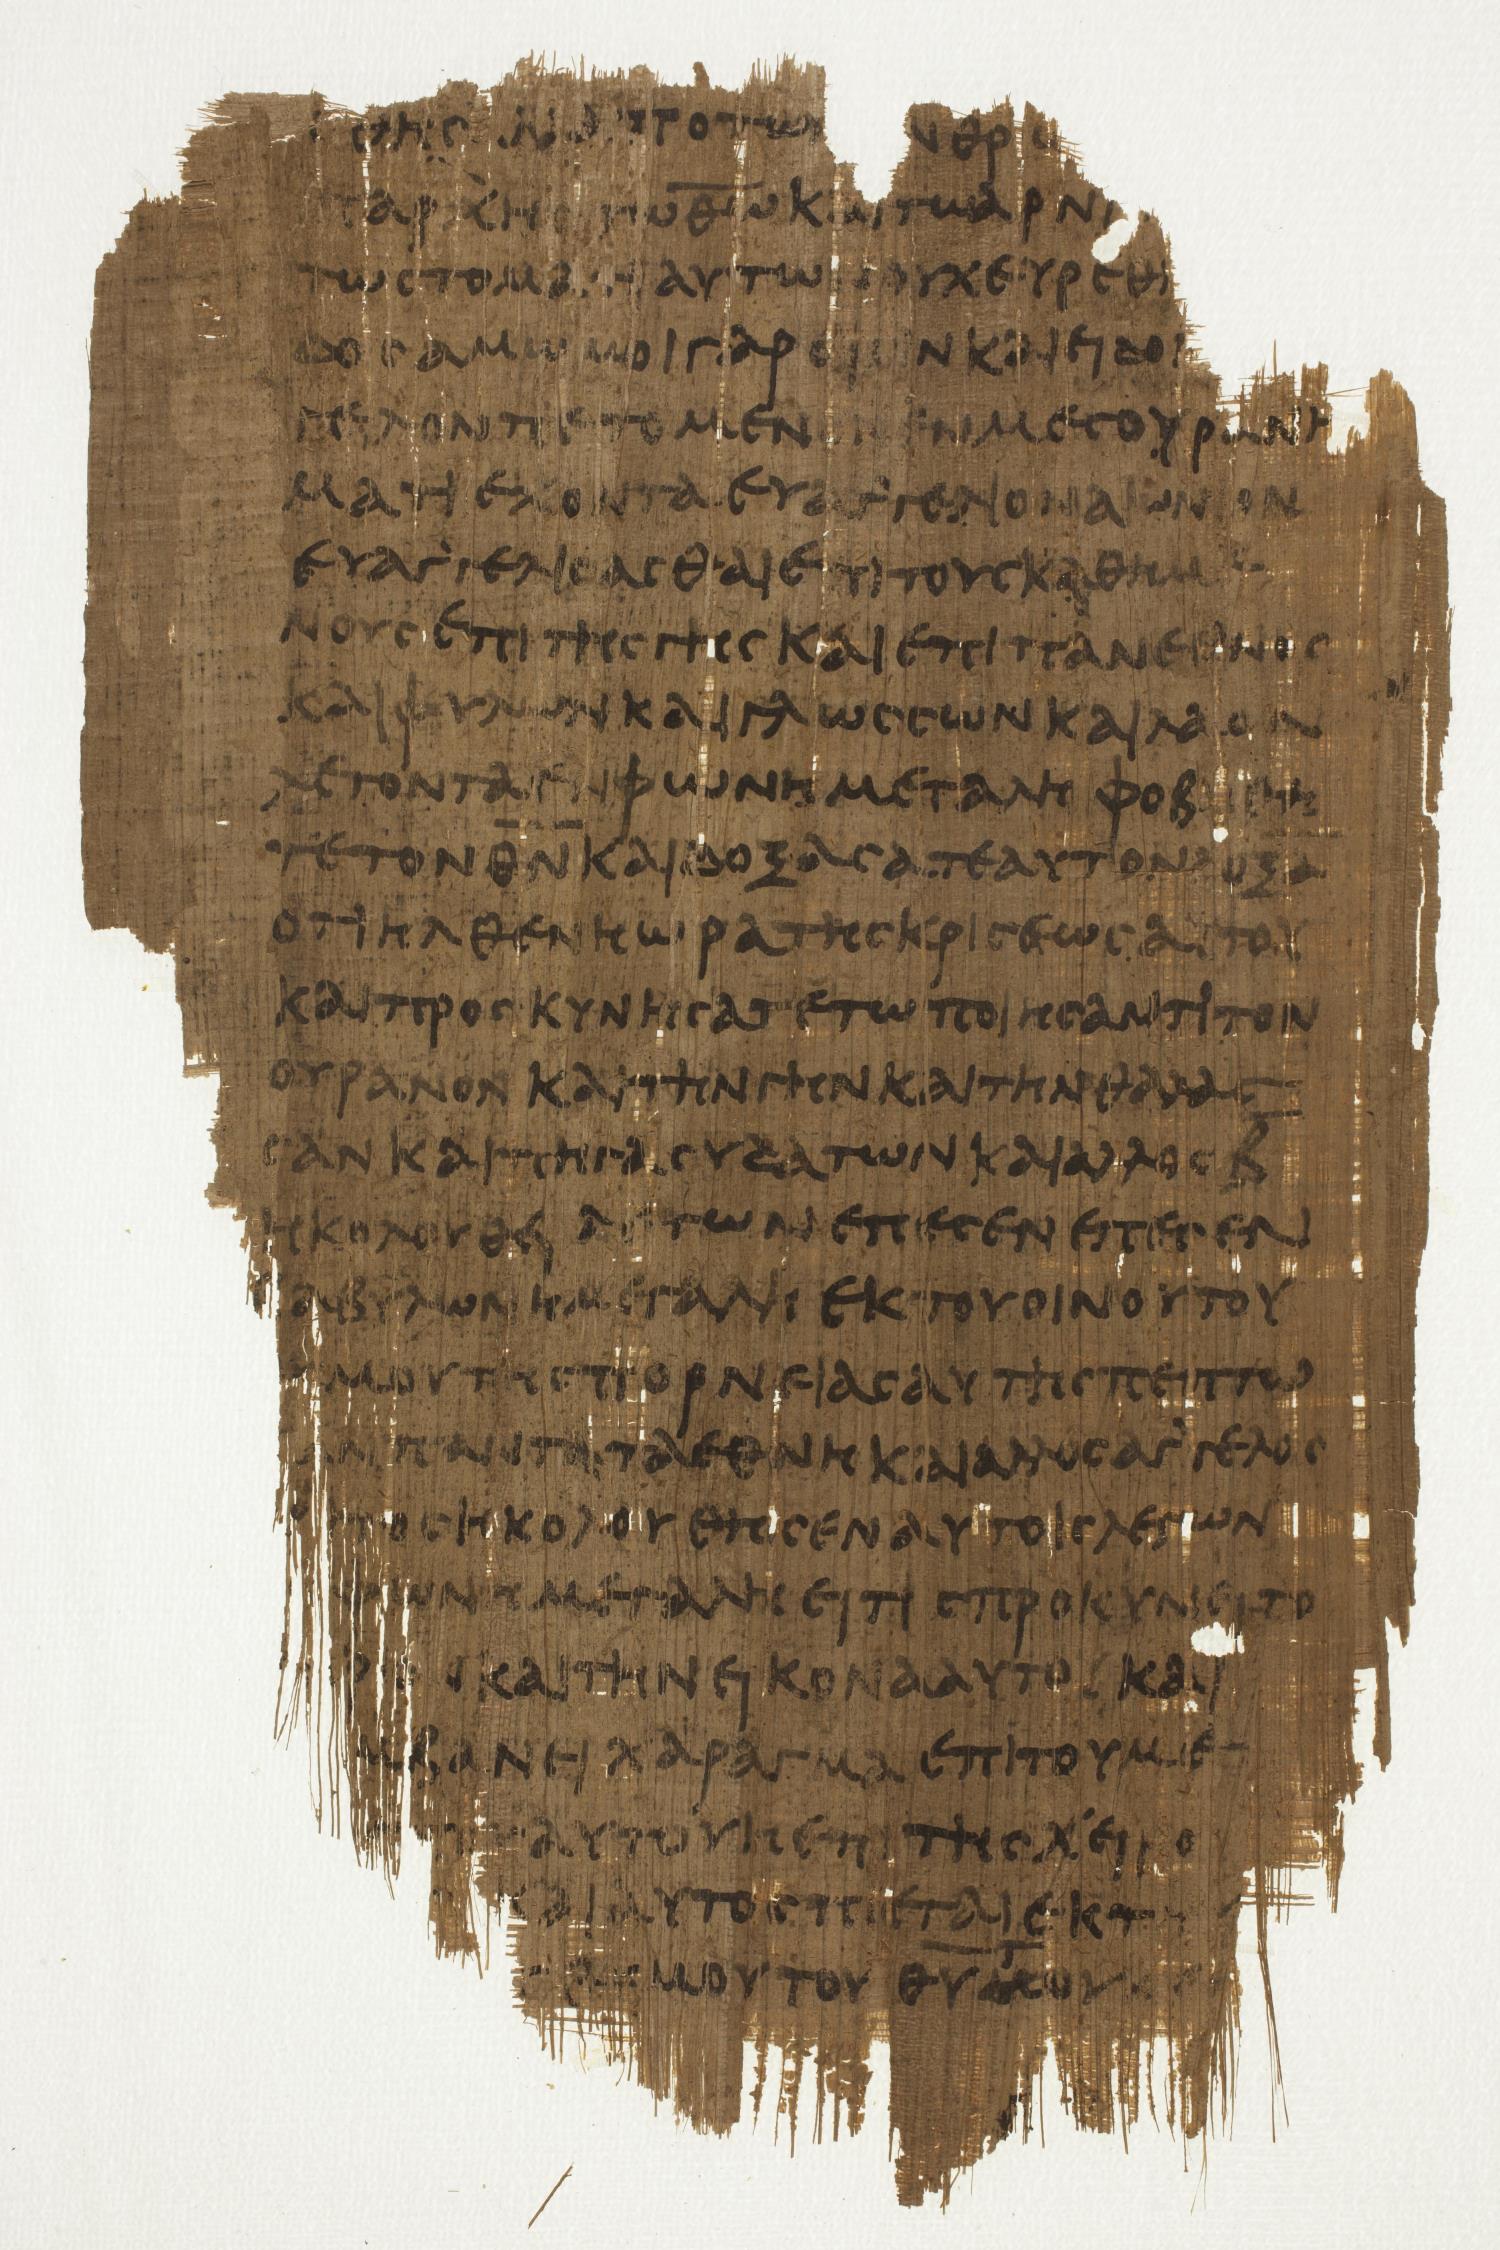 ΘΗϹ ΑΠΟ ΤΩΝ
ΑΠΑΡΧΗ ΤΩ Θ̅Ω̅ ΚΑΙ ΤΩ ΑΡΝΙ
ΤΩ ϹΤΟΜΑΤΙ ΑΥΤΩΝ ΟΥΧ ΕΥΡΕΘΗ
ΔΟϹ ΑΜΩΜΟΙ ΓΑΡ ΕΙϹΙΝ ΚΑΙ ΕΙΔΟΝ
ΓΕΛΟΝ ΠΕΤΟΜΕΝΟΝ ΕΝ ΜΕϹΟΥΡΑΝΗ
ΜΑΤΙ ΕΧΟΝΤΑ ΕΥΑΓ'ΓΕΛΙΟΝ ΑΙΩΝΙΟΝ
ΕΥΑΓ'ΓΕΛΙϹΑϹΘΑΙ ΕΠΙ ΤΟΥϹ ΚΑΘΗΜΕ
ΝΟΥϹ ΕΠΙ ΤΗϹ ΓΗϹ ΚΑΙ ΕΠΙ ΠΑΝ ΕΘΝΟϹ
ΚΑΙ ΦΥΛΩΝ ΚΑΙ ΓΛΩϹϹΩΝ ΚΑΙ ΛΑΟΝ
ΛΕΓΟΝΤΑ ΕΝ ΦΩΝΗ ΜΕΓΑΛΗ ΦΟΒΗΘΗ
ΤΕ ΤΟΝ Θ̅Ν̅ ΚΑΙ ΔΟΞΑϹΑΤΕ ΑΥΤΟΝ ΔΟΞΑ
ΟΤΙ ΗΛΘΕΝ Η ΩΡΑ ΤΗϹ ΚΡΙϹΕΩϹ ΑΥΤΟΥ
ΚΑΙ ΠΡΟϹΚΥΝΗϹΑΤΕ ΤΩ ΠΟΙΗϹΑΝΤΙ ΤΟΝ
ΟΥΡΑΝΟΝ ΚΑΙ ΤΗΝ ΓΗΝ ΚΑΙ ΤΗΝ ΘΑΛΑϹ
ϹΑΝ ΚΑΙ ΠΗΓΑϹ ΥΔΑΤΩΝ ΚΑΙ ΑΛΛΟϹ Β̅
ΗΚΟΛΟΥΘΕΙ ΛΕΓΩΝ ΕΠΕϹΕΝ ΕΠΕϹΕΝ
ΒΑΒΥΛΩΝ Η ΜΕΓΑΛΗ ΕΚ ΤΟΥ ΟΙΝΟΥ ΤΟΥ
ΜΟΥ ΤΗϹ ΠΟΡΝΕΙΑϹ ΑΥΤΗϹ ΠΕΠΤΩ
ΑΝ ΠΑΝΤΑ ΤΑ ΕΘΝΗ ΚΑΙ ΑΛΛΟϹ ΑΓ'ΓΕΛΟϹ
ΤΟϹ ΗΚΟΛΟΥΘΗϹΕΝ ΑΥΤΟΙϹ ΛΕΓΩΝ
ΦΩΝΗ ΜΕΓΑΛΗ ΕΙ ΤΙϹ ΠΡΟΚΥΝΕΙ ΤΟ
ΚΑΙ ΤΗΝ ΕΙΚΟΝΑ ΑΥΤΟΥ ΚΑΙ
ΜΒΑΝΕΙ ΧΑΡΑΓΜΑ ΕΠΙ ΤΟΥ ΜΕΤ
ΑΥΤΟΥ Η ΕΠΙ ΤΗϹ ΧΕΙΡΟ
ΚΑΙ ΑΥΤΟϹ ΠΙΕΤΑΙ ΕΚ Τ
ΜΟΥ ΤΟΥ ΘΥ